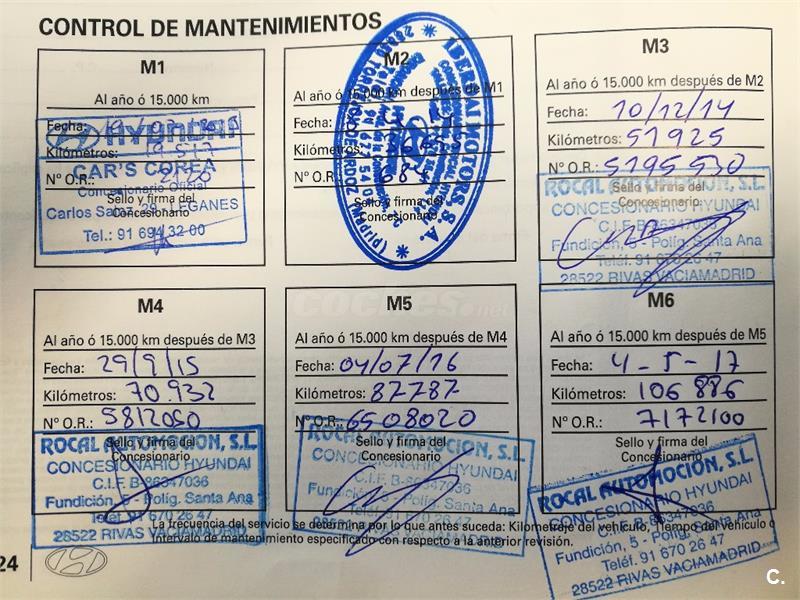 CONTROL DE MANTENIMIENTOS
M1
Al año ó 15.000 km
Fecha:
HYUNDAI
Kilómetros:
CAR'S COREA
Nº O.R.:
Concesionario Oficial
Sello y firma del
Concesionario
Carlos Sainz, 29 - LEGANES
Tel.: 91 694 32 00
M2
Al año ó 15.000 km después de M1
Fecha:
Kilómetros:
Nº O.R.: 684
Sello y firma del
Concesionario
IBERIAI MOTORS, S.A.
28850 TORREJON DE ARDOZ (Madrid)
M3
Al año ó 15.000 km después de M2
Fecha: 10/12/14
Kilómetros: 51925
Nº O.R.: 5195530
Sello y firma del
Concesionario
ROCAL AUTOMOCION, S.L.
CONCESIONARIO HYUNDAI
C.I.F. B-86347036
Fundición, 5 - Políg. Santa Ana
Teléf. 91 670 26 47
28522 RIVAS VACIAMADRID
M4
Al año ó 15.000 km después de M3
Fecha: 29/9/15
Kilómetros: 70.932
Nº O.R.: 5812050
Sello y firma del
Concesionario
ROCAL AUTOMOCIÓN, S.L.
CONCESIONARIO HYUNDAI
C.I.F. B-86347036
Fundición, 5 - Políg. Santa Ana
Teléf. 91 670 26 47
28522 RIVAS VACIAMADRID
M5
Al año ó 15.000 km después de M4
Fecha: 04/07/16
Kilómetros: 87787
Nº O.R.: 6508020
Sello y firma del
Concesionario
ROCAL AUTOMOCIÓN, S.L.
CONCESIONARIO HYUNDAI
C.I.F. B-86347036
Fundición, 5 - Políg. Santa Ana
Teléf. 91 670 26 47
28522 RIVAS VACIAMADRID
M6
Al año ó 15.000 km después de M5
Fecha: 4-5-17
Kilómetros: 106886
Nº O.R.: 7172100
Sello y firma del
Concesionario
ROCAL AUTOMOCIÓN, S.L.
CONCESIONARIO HYUNDAI
C.I.F. B-86347036
Fundición, 5 - Políg. Santa Ana
Teléf. 91 670 26 47
28522 RIVAS VACIAMADRID
La frecuencia del servicio se determina por lo que antes suceda: Kilometraje del vehículo, Tiempo del vehículo o
Intervalo de mantenimiento especificado con respecto a la anterior revisión.
24
coches.net
C.